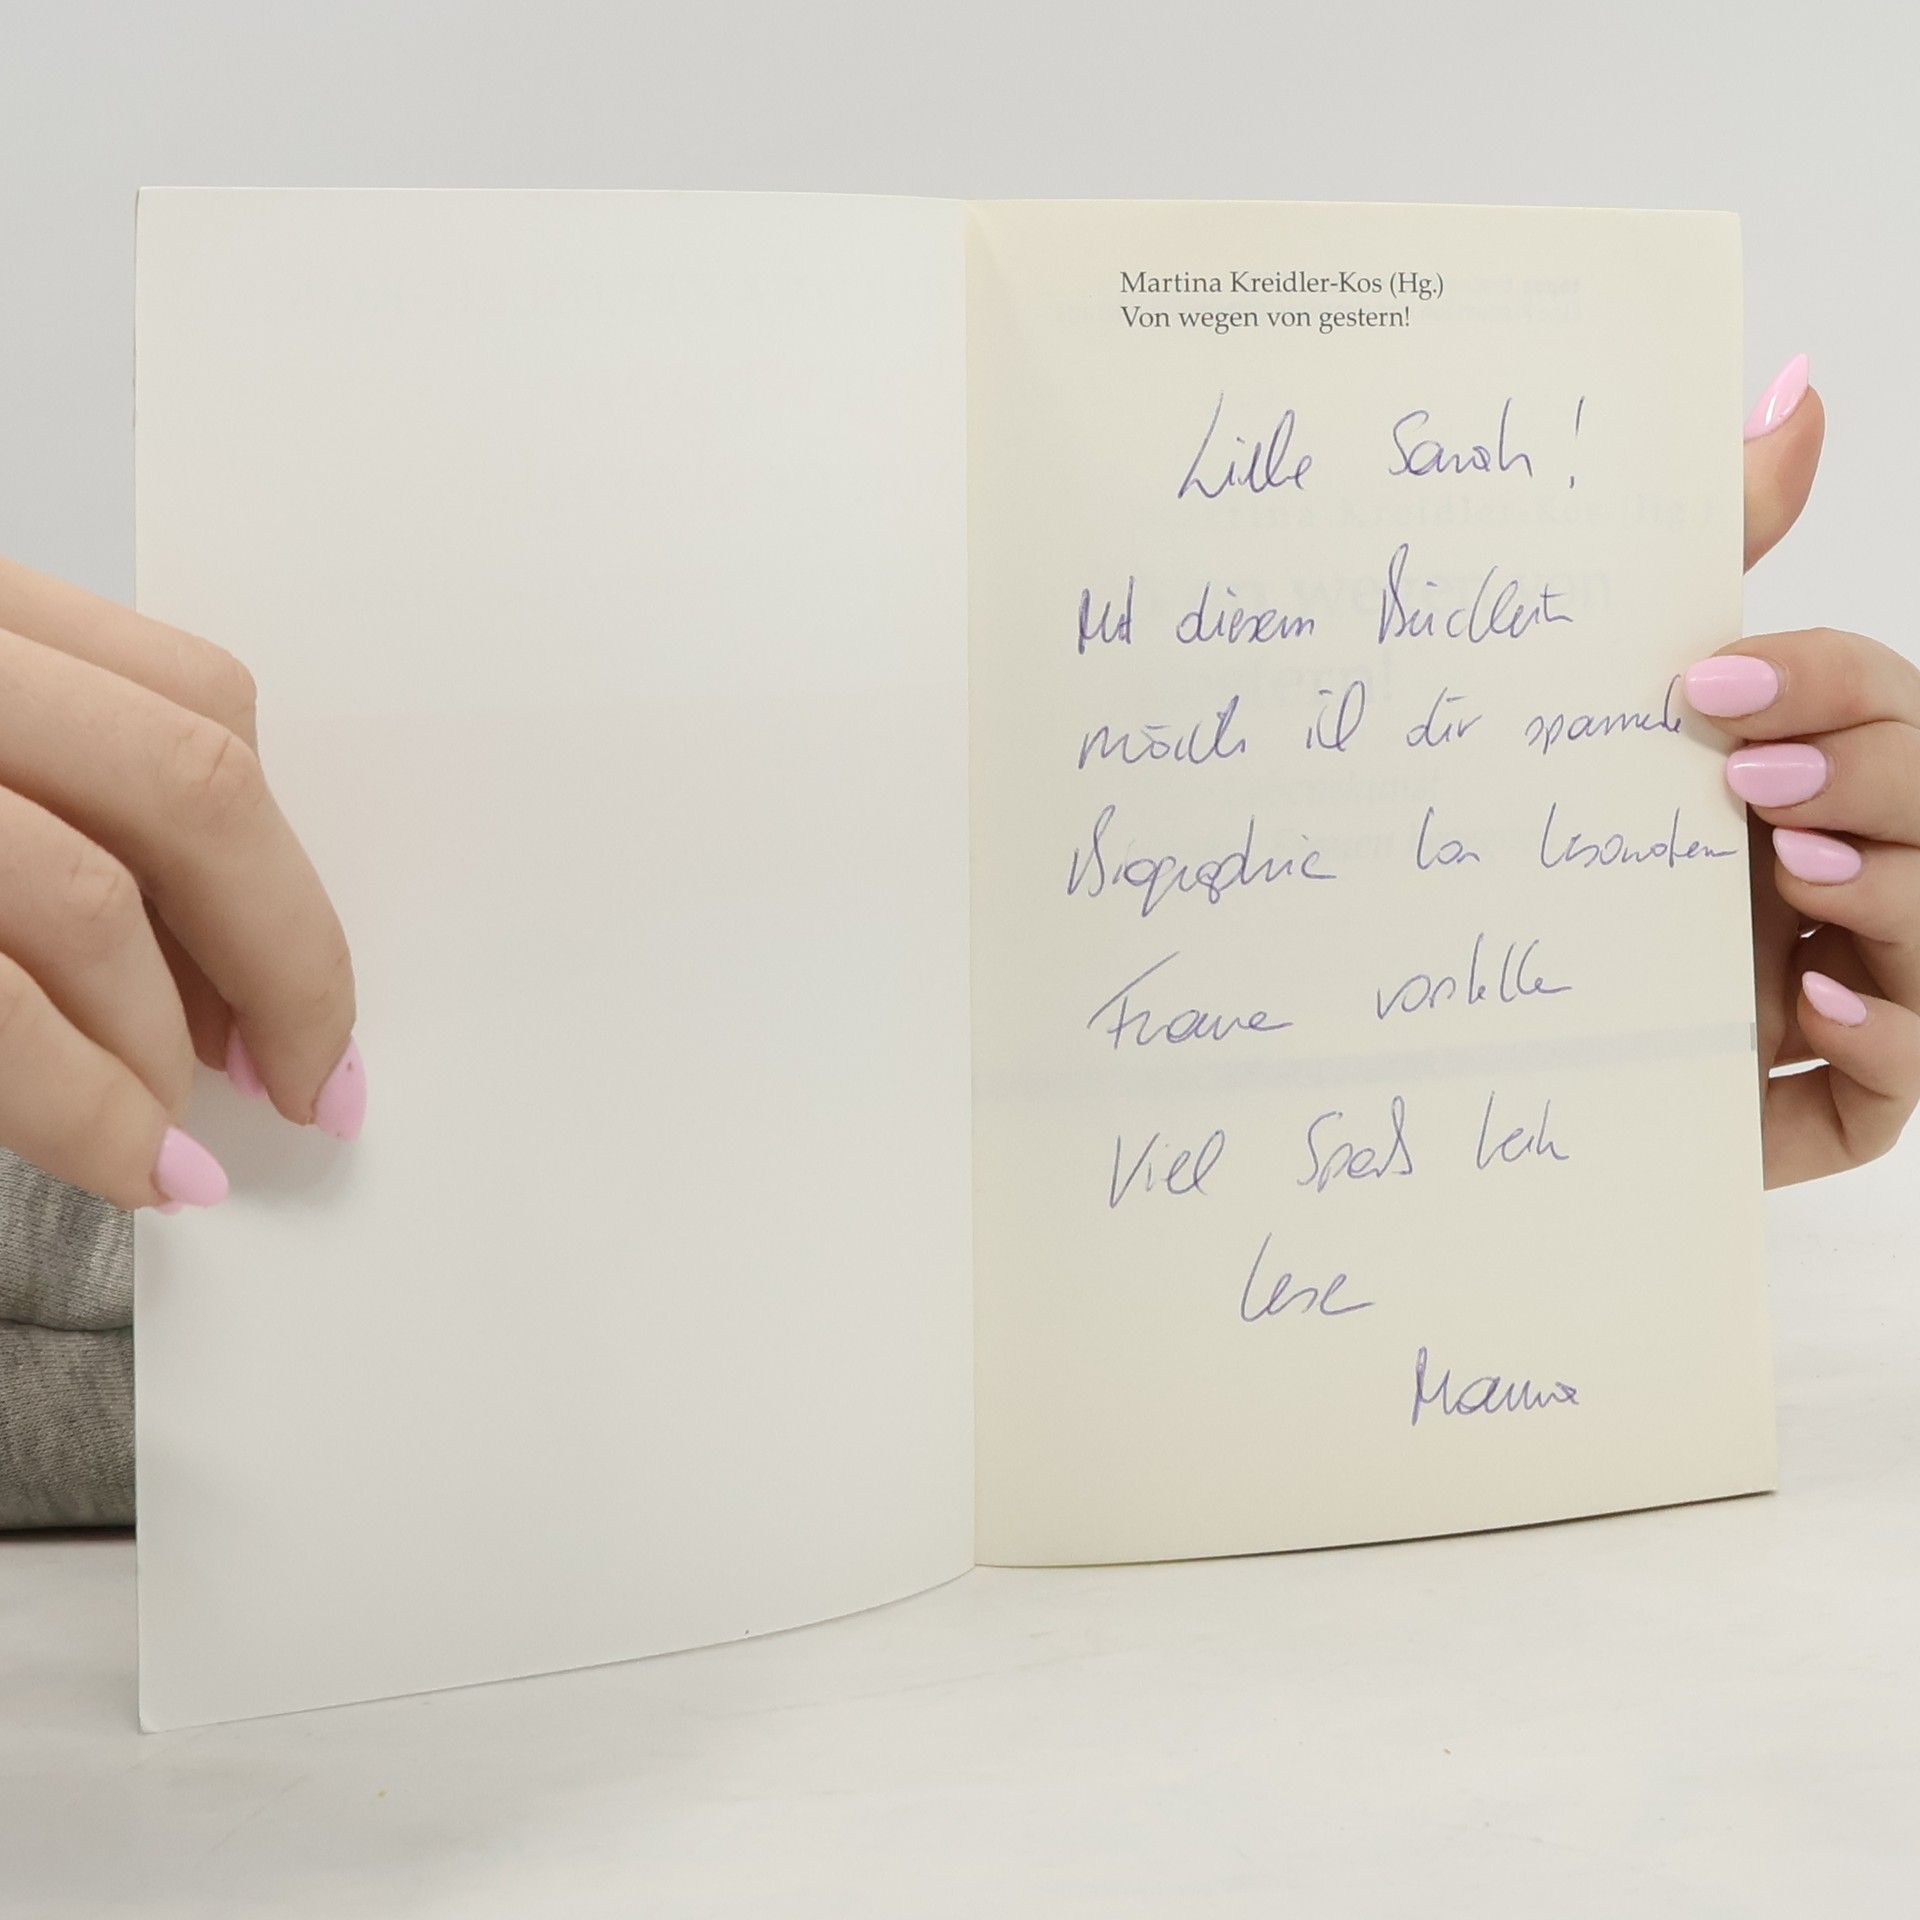 Martina Kreidler-Kos (Hg.)
Von wegen von gestern!
Liebe Sarah!
Mit diesem Büchlein
möcht ich dir spannende
Biographie von besonderen
Fraue vorstelle
Viel Spaß beim
Lese
Mama